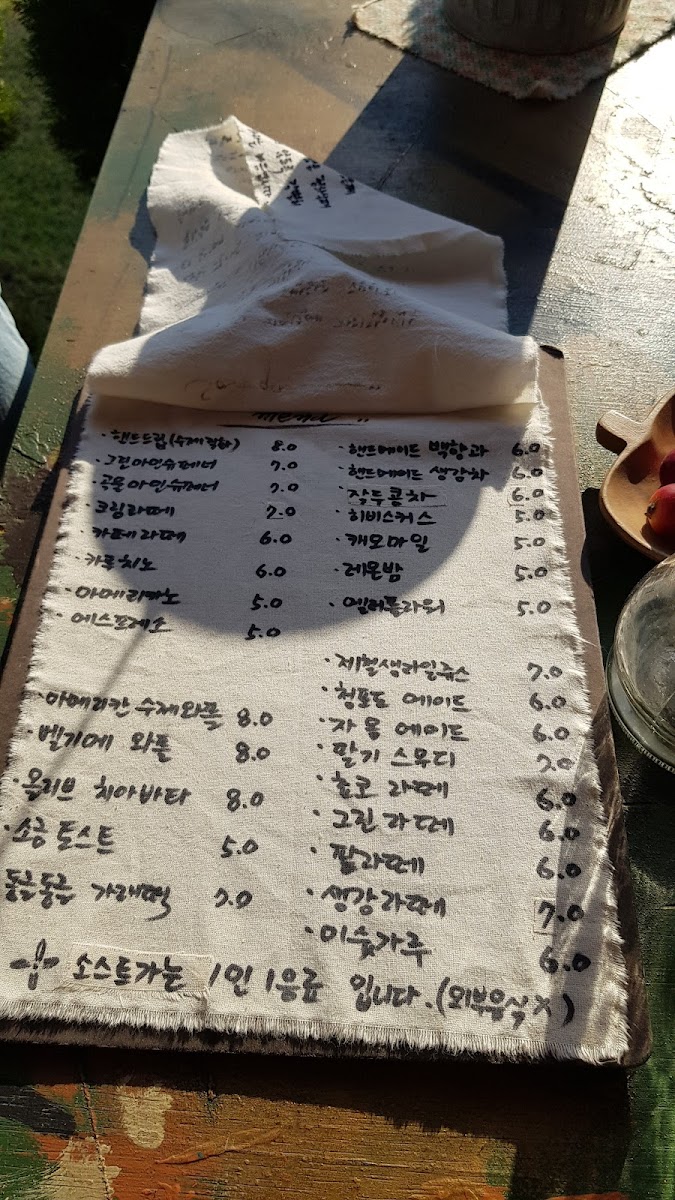 menu
· 핸드드립(수제정과) 8.0
· 그린아인슈페너 7.0
· 곡물아인슈페너 7.0
· 크림라떼 7.0
· 카페라떼 6.0
· 카푸치노 6.0
· 아메리카노 5.0
· 에스프레소 5.0
· 아메리칸 수제와플 8.0
· 벨기에 와플 8.0
· 올리브 치아바타 8.0
· 소금 토스트 5.0
동글동글 가래떡 7.0
· 핸드메이드 백향과 6.0
· 핸드메이드 생강차 6.0
· 작두콩차 6.0
· 히비스커스 5.0
· 캐모마일 5.0
· 레몬밤 5.0
· 엘더플라워 5.0
· 제철생과일쥬스 7.0
· 청포도 에이드 6.0
· 자몽 에이드 6.0
· 딸기 스무디 7.0
· 초코 라떼 6.0
· 그린라떼 6.0
· 팥라떼 6.0
· 생강라떼 7.0
· 미숫가루 6.0
소스트가는 1인 1음료 입니다.(외부음식X)